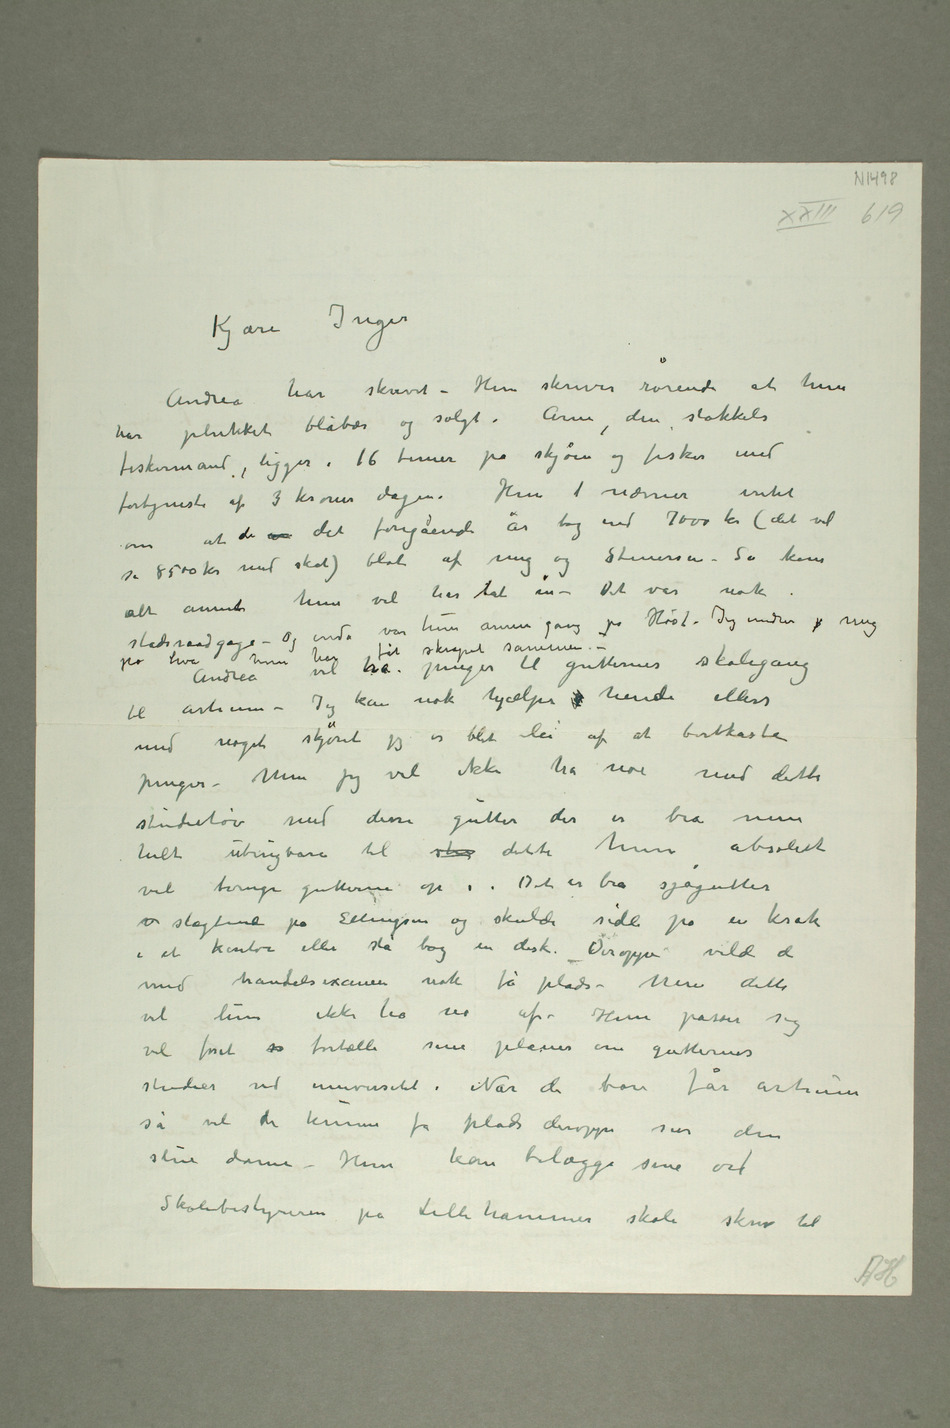 N1498
XXIII 619
Kjære Inger
Andrea har skrevet – Hun skriver rørende at hun
har plukket blåbær og solgt. Arne, den stakkels
fiskermand, ligger i 16 timer på sjøen og fisker med
fortjeneste af 3 kroner dagen. Hun nævner intet
om at de det foregående år tog ind 7000 kr (det vil
si 8500 kr med skat) blot af mig og Stenersen – Så kom
alt annet hun vel har tat in – Det var nok
stadsraadgage – Og enda var hun annen gang på Høst. Jeg undrer mig
på hva hun har fåt skrapet sammen. –
Andrea vil ha penger til gutternes skolegang
til artium – Jeg kan nok hjælpe hende ellers
med noget skjønt jeg er blet lei af at bortkaste
penger – Men jeg vil ikke ha noe med dette
studietøv med disse gutter der er bra men
helt ubrugbare til dette hun absolut
vil tvinge gutterne op i. Det er bra sjøgutter
slagtend på Ellingsen og skulde sidde på en krak
i et kontor eller stå bag en disk. Deroppe vilde de
med handelsexamen nok få plads – Men dette
vil hun ikke ha no af – Hun passer sig
vel for at fortælle sine planer om gutternes
studier ved universitet. Når de bare får artium
så vil de kunne få plads deroppe sier den
slue dame – Hun kan belægge sine ord
Skolebestyreren på Lillehammer skole skrev til
AH